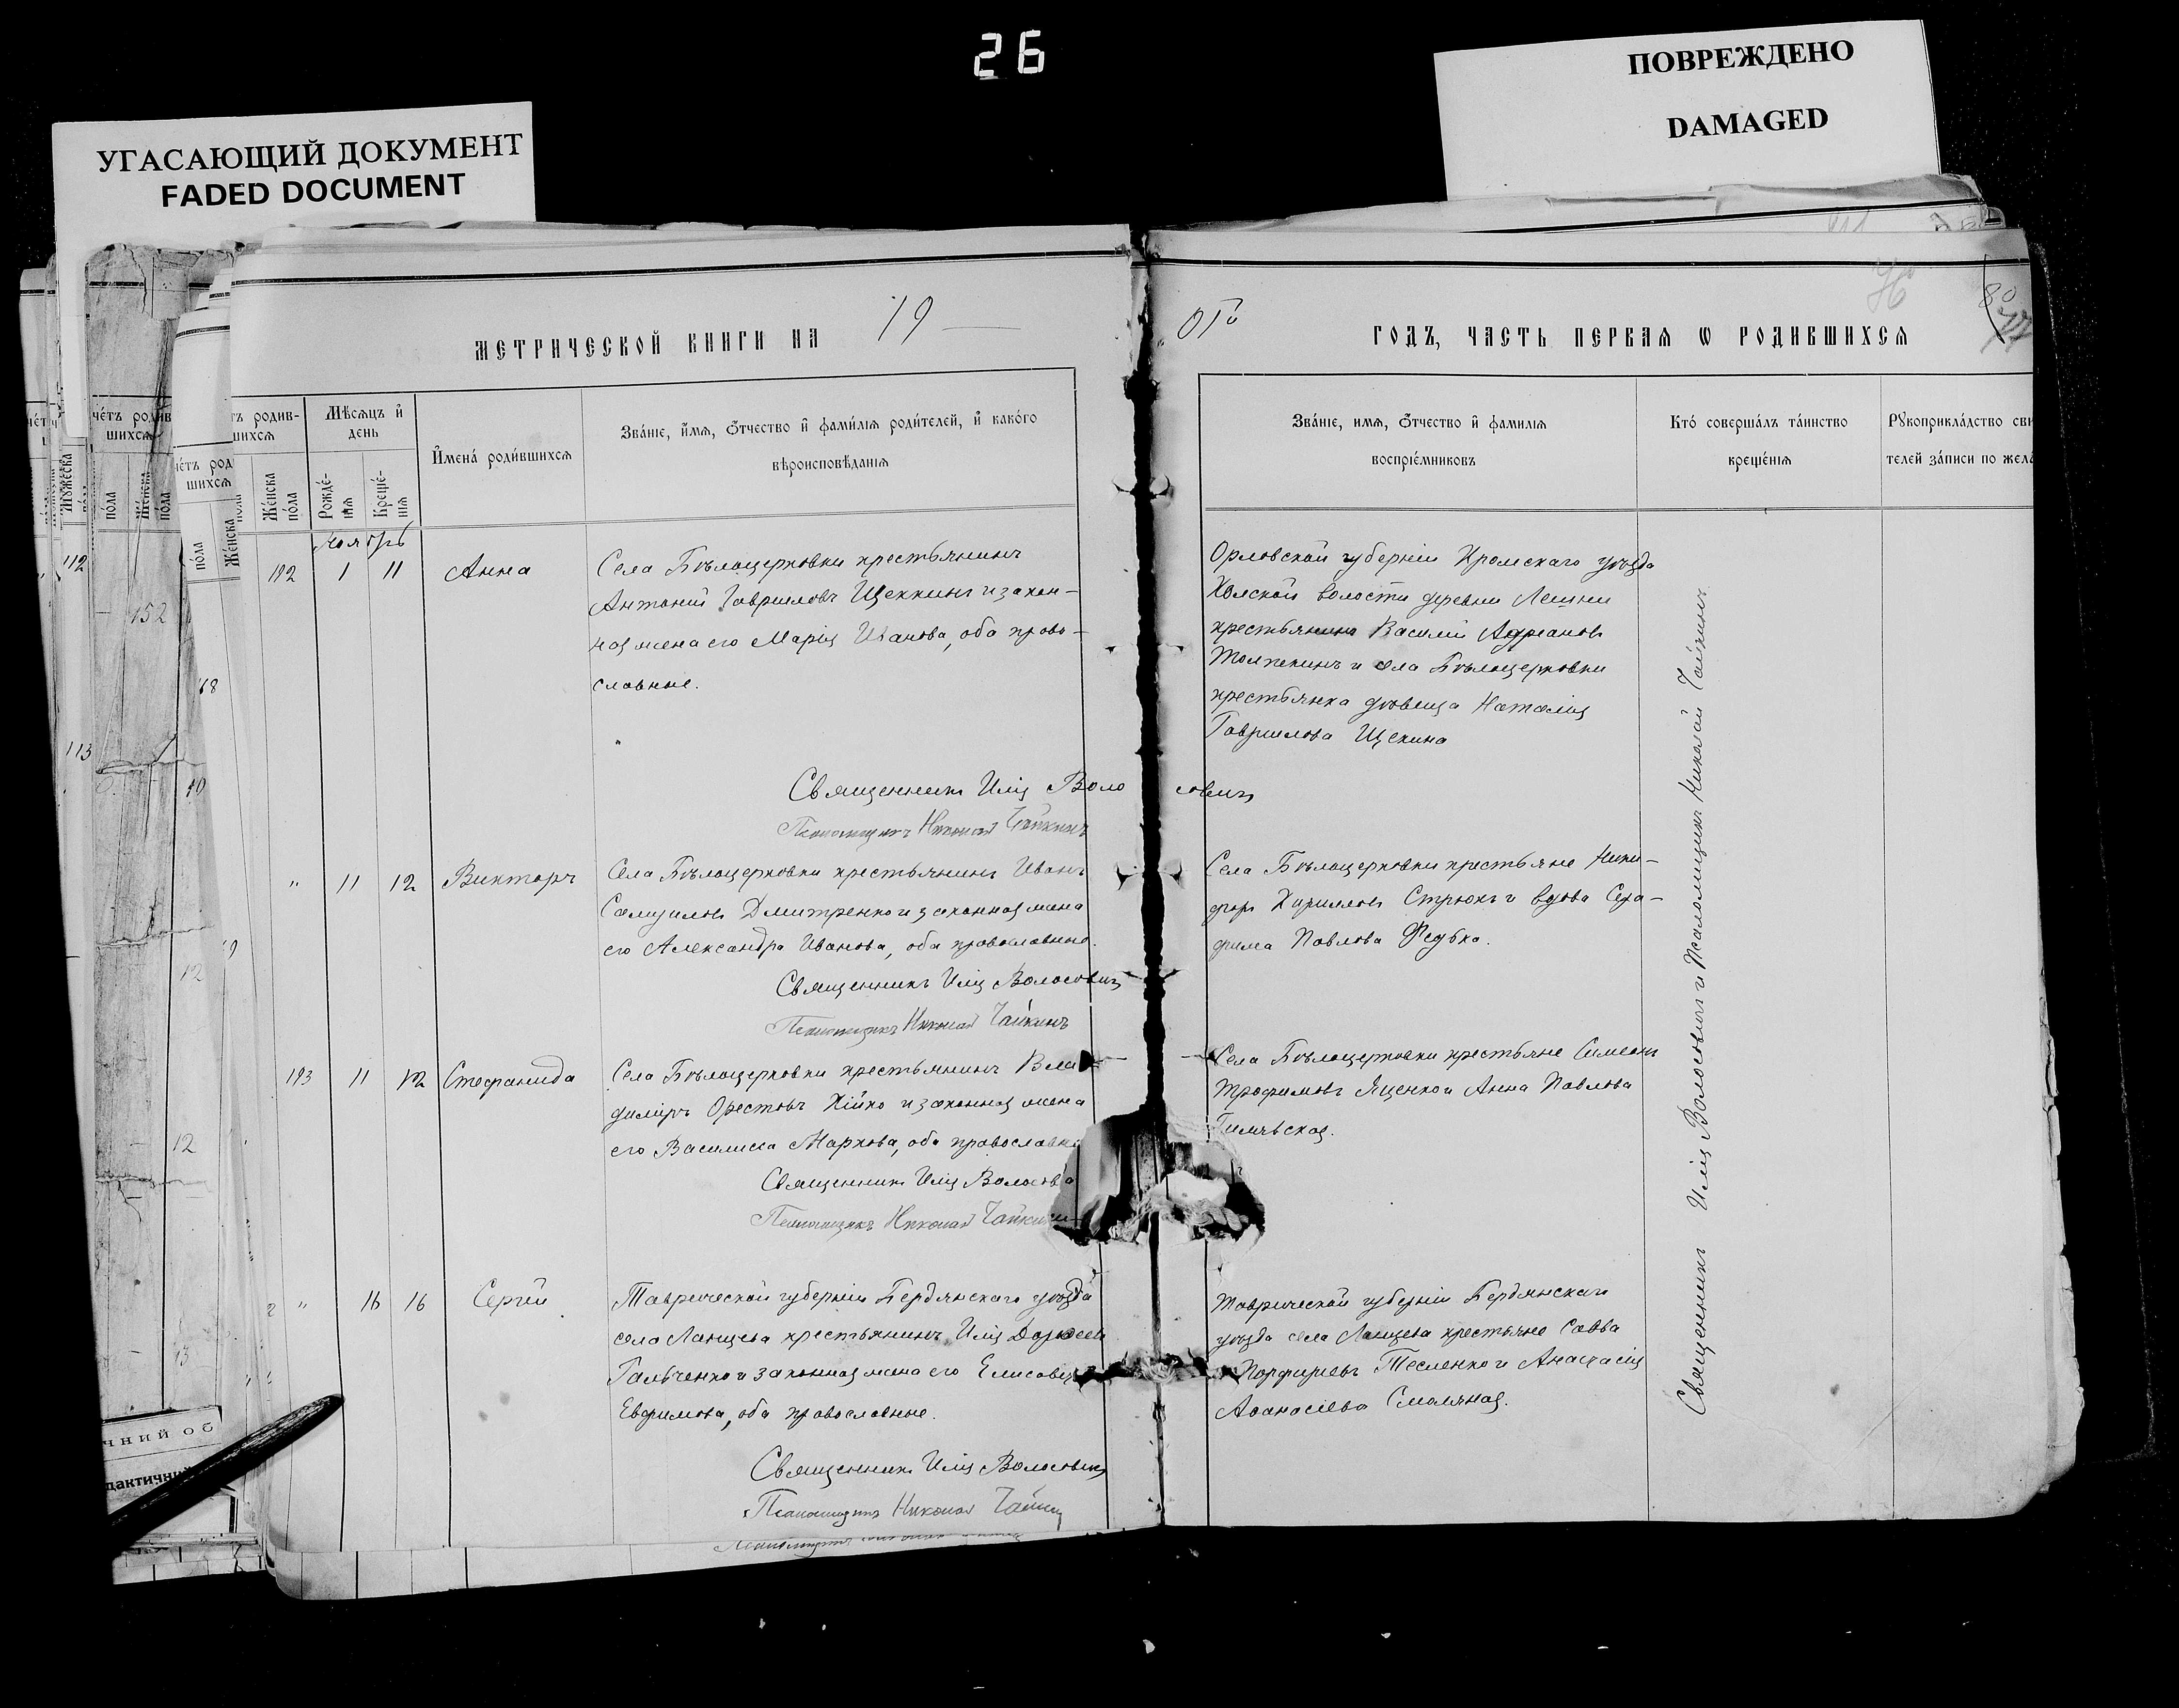 26
ПОВРЕЖДЕНО
DAMAGED
УГАСАЮЩИЙ ДОКУМЕНТ
FADED DOCUMENT
МЕТРИЧЕСКОЙ КНИГИ НА 19
01го ГОДЪ, ЧАСТЬ ПЕРВАЯ Ѡ РОДИВШИХСЯ
80
Мѣсяцъ и день
Имена родившихся
Званіе, имя, отчество и фамилія родителей, и какого
вѣроисповѣданія
Женска пола
Рожденія
Крещенія
Званіе, имя, отчество и фамилія
воспріемниковъ
Кто совершалъ таинство
крещенія
Рукоприкладство сви
телей записи по жела
Ноябрь
192 1 11 Анна
Села Бѣлоцерковки крестьянинъ
Антоній Гавриловъ Щекинъ и закон-
ная жена его Марія Иванова, оба право-
славные.
Орловской губерніи Кромскаго уѣзда
волости деревни
крестьянинъ Василій Адріановъ
и села Бѣлоцерковки
крестьянка дѣвица Наталія
Гаврилова Щекина
Священникъ Илія Волосовичъ
Псаломщикъ Николай Чайкинъ
" 11 12 Викторъ
Села Бѣлоцерковки крестьянинъ Иванъ
Самуиловъ Дмитренко и законная жена
его Александра Иванова, оба православные.
Села Бѣлоцерковки крестьяне Ники-
форъ Кирилловъ Стрюкъ и вдова Сера-
фима Павлова
Священникъ Илія Волосовичъ
Псаломщикъ Николай Чайкинъ
193 11 12 Стефанида
Села Бѣлоцерковки крестьянинъ Вла-
диміръ Орестовъ Кійко и законная жена
его Василиса Маркова, оба православн
Села Бѣлоцерковки крестьяне Симеонъ
Трофимовъ Яценко и Анна Павлова
Священникъ Илія Волосов
Псаломщикъ Николай Чайкинъ
" 16 16 Сергій
Таврической губерніи Бердянскаго уѣзда
села крестьянинъ Илія
Гальченко и законная жена его Елисавета
Евфимова, оба православные.
Таврической губерніи Бердянскаго
уѣзда села крестьяне Савва
Порфирьевъ Тесленко и Анастасія
Аѳанасіева Смоляная.
Священникъ Илія Волосовичъ
Псаломщикъ Николай Чайкинъ
Священникъ Илія Волосовичъ и Псаломщикъ Николай Чайкинъ
112
152
68
113
12
12
13